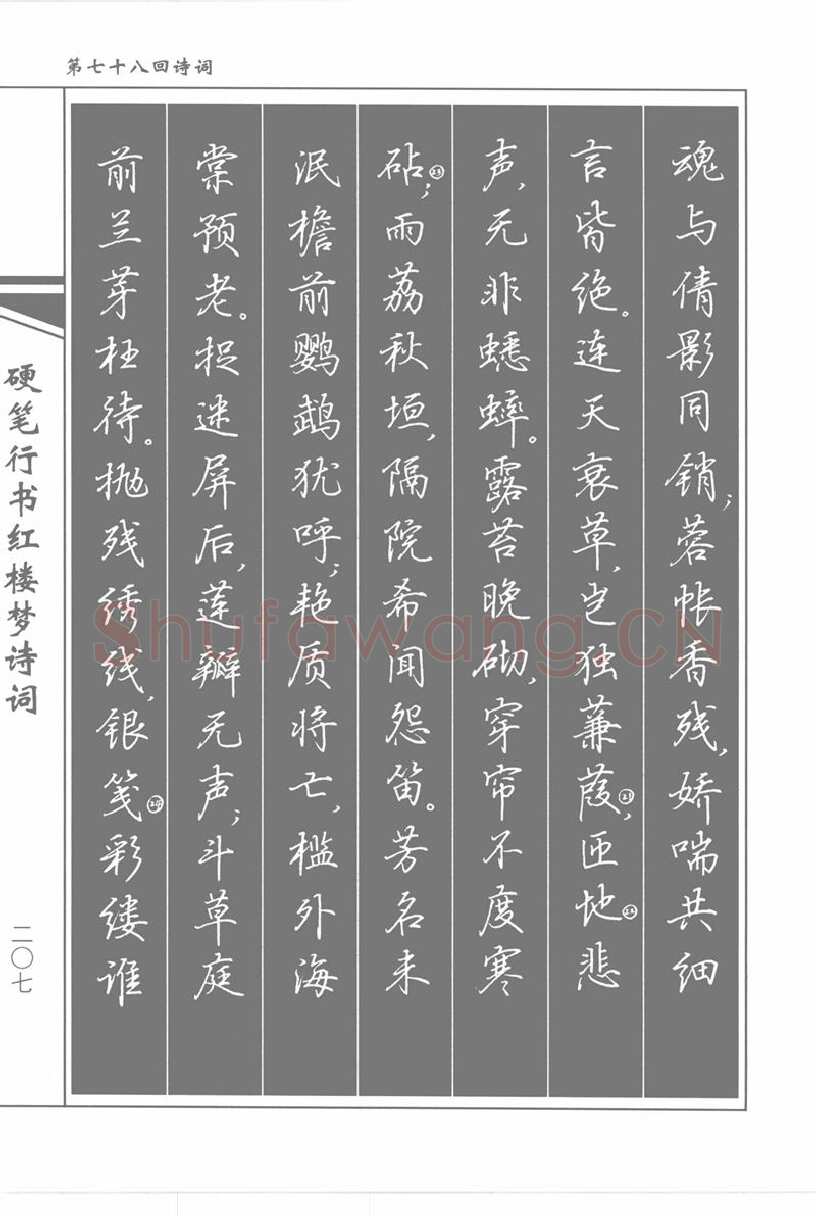 第七十八回诗词
魂与倩影同销；蓉帐香残，娇喘共细
言皆绝。连天衰草，岂独蒹葭㉑，匝地㉒悲
声，无非蟋蟀。露苔晚砌，穿帘不度寒
砧㉓；雨荔秋垣，隔院希闻怨笛。芳名未
泯，檐前鹦鹉犹呼；艳质将亡，槛外海
棠预老。捉迷屏后，莲瓣无声；斗草庭
前，兰芽枉待。抛残绣线，银笺㉔彩缕谁
硬笔行书红楼梦诗词
二〇七
Shufawang.CN